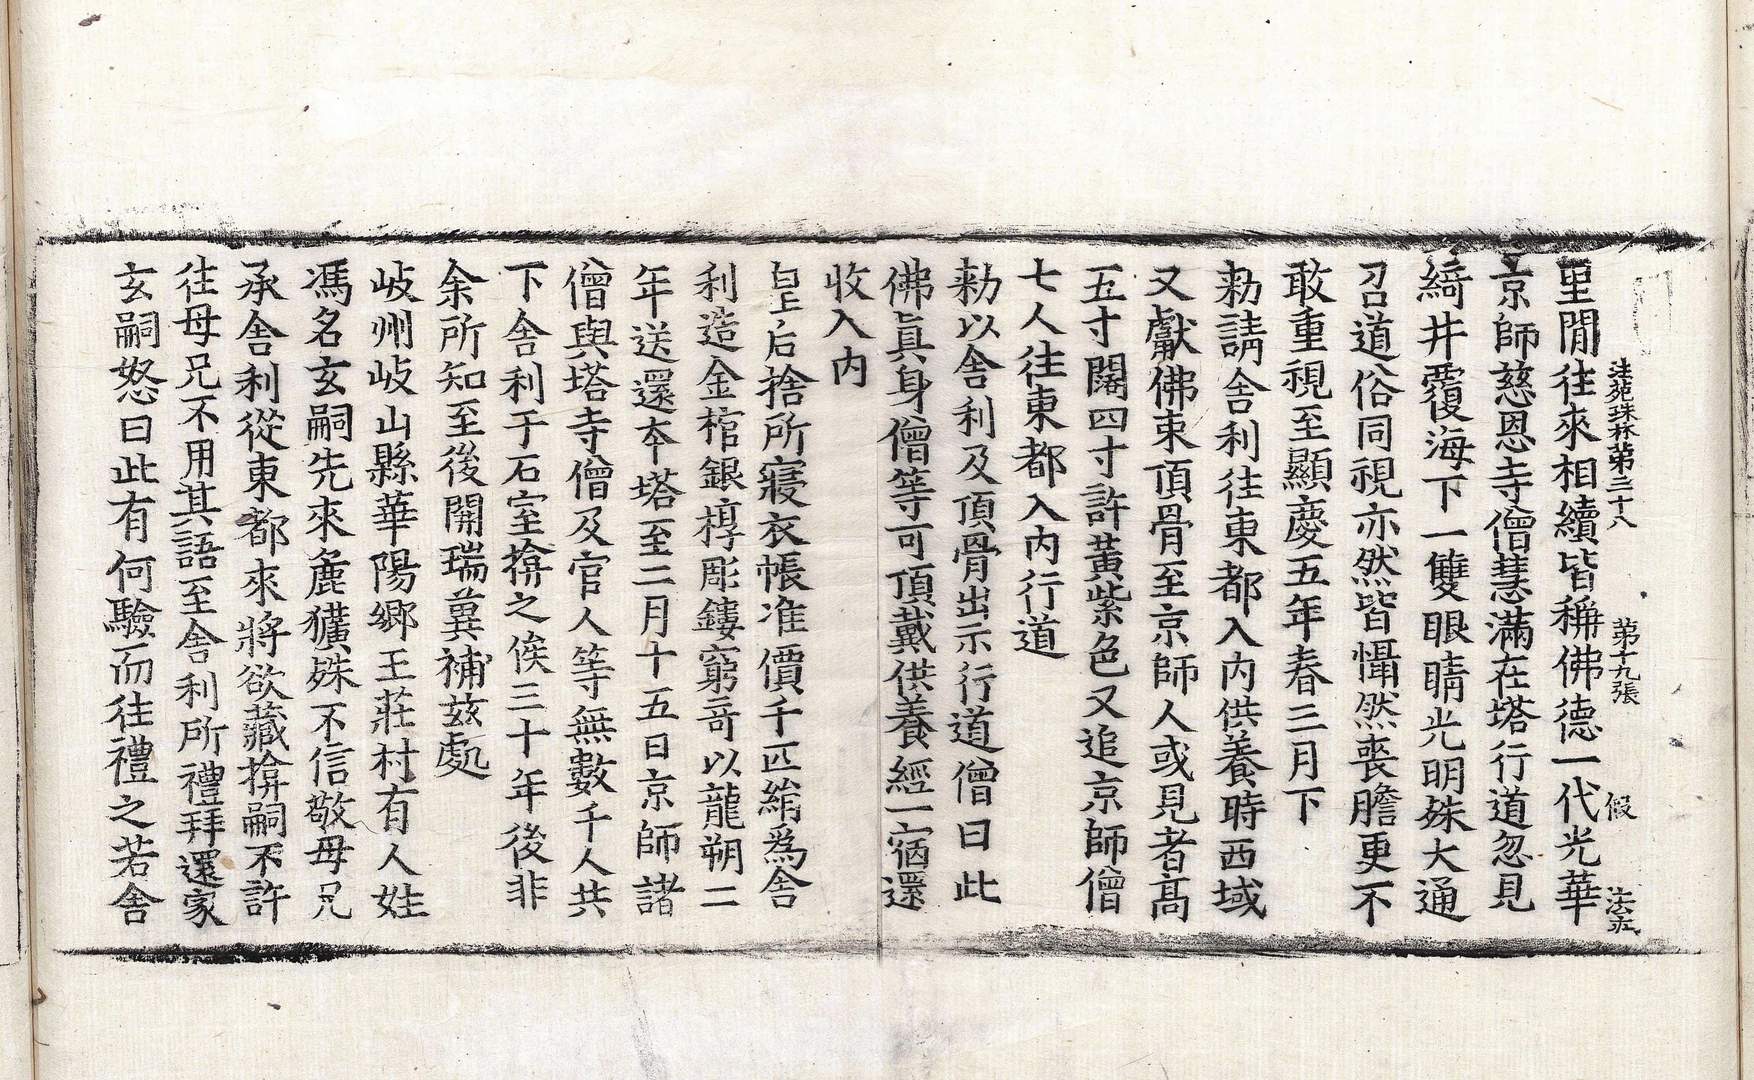 法苑珠林第三十八 第十九張 假 法莊
里閒往來相續皆稱佛德一代光華
京師慈恩寺僧慧滿在塔行道忽見
綺井覆海下一雙眼睛光明殊大通
召道俗同視亦然皆懾然喪膽更不
敢重視至顯慶五年春三月下
勑請舍利往東都入内供養時西域
又獻佛束頂骨至京師人或見者高
五寸闊四寸許黃紫色又追京師僧
七人往東都入内行道
勑以舍利及頂骨出示行道僧曰此
佛眞身僧等可頂戴供養經一宿還
收入内
皇后捨所寢衣帳准價千匹絹爲舍
利造金棺銀槨彫鏤窮奇以龍朔二
年送還本塔至二月十五日京師諸
僧與塔寺僧及官人等無數千人共
下舍利于石室揜之俟三十年後非
余所知至後開瑞冀補茲處
岐州岐山縣華陽鄉王莊村有人姓
馮名玄嗣先來麁獷殊不信敬母兄
承舍利從東都來將欲藏揜嗣不許
往母兄不用其語至舍利所禮拜還家
玄嗣怒曰此有何驗而往禮之若舍